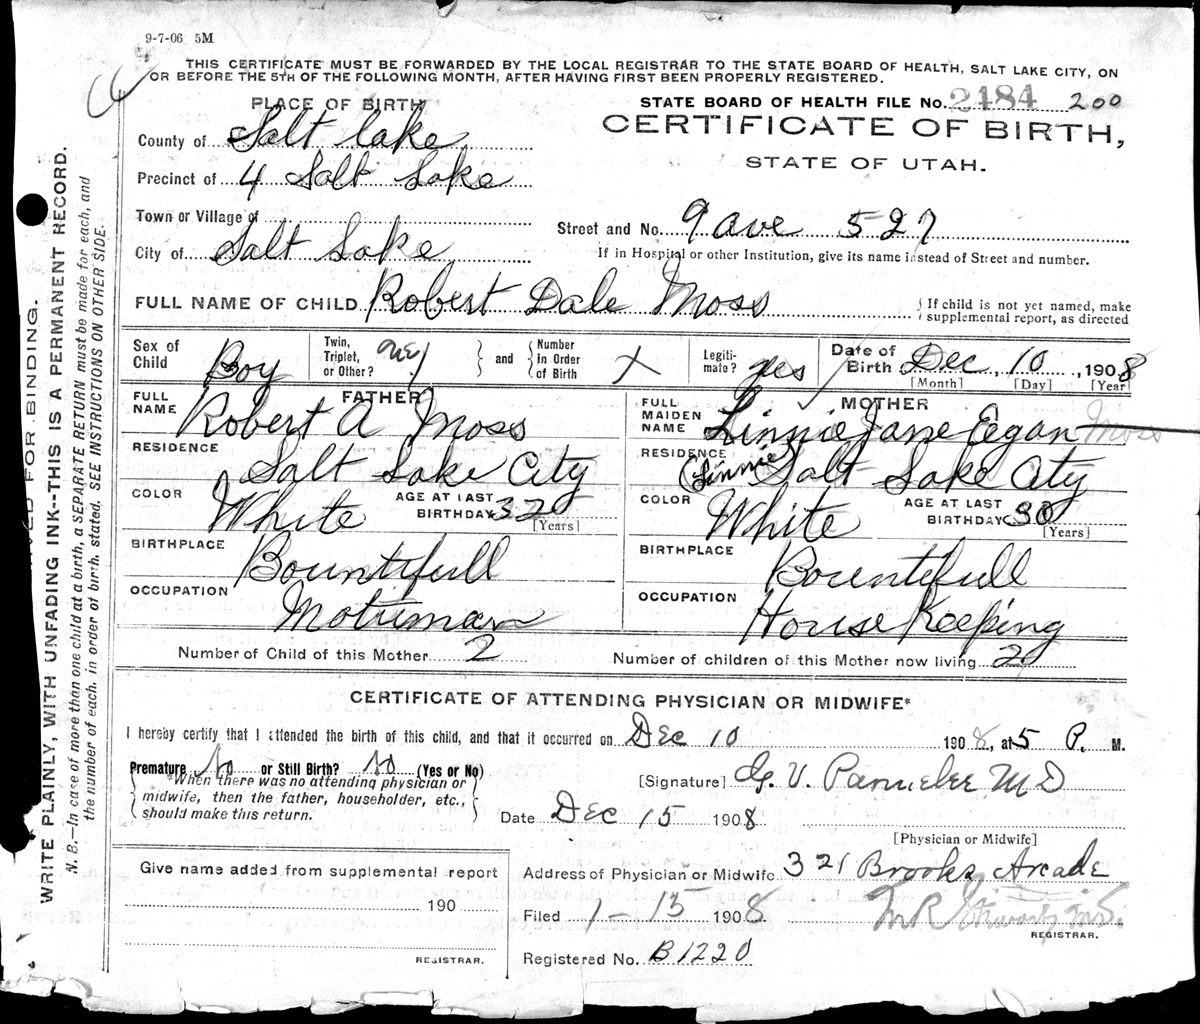 9-7-06 5M
THIS CERTIFICATE MUST BE FORWARDED BY THE LOCAL REGISTRAR TO THE STATE BOARD OF HEALTH, SALT LAKE CITY, ON
OR BEFORE THE 5TH OF THE FOLLOWING MONTH, AFTER HAVING FIRST BEEN PROPERLY REGISTERED.
PLACE OF BIRTH
STATE BOARD OF HEALTH FILE No. 2484 200
CERTIFICATE OF BIRTH,
STATE OF UTAH.
County of Salt Lake
Precinct of 4 Salt Lake
Town or Village of
Street and No. 9 ave 527
City of Salt Lake
If in Hospital or other Institution, give its name instead of Street and number.
FULL NAME OF CHILD Robert Dale Moss
If child is not yet named, make
supplemental report, as directed
Sex of Child Boy
Twin, Triplet, or Other?
and
Number in Order of Birth
Legiti-mate? yes
Date of Birth Dec, 10, 1908
[Month] [Day] [Year
FATHER
FULL NAME Robert A Moss
RESIDENCE Salt Lake City
COLOR White
AGE AT LAST BIRTHDAY 32
[Years]
BIRTHPLACE Bountifull
OCCUPATION Motirman
MOTHER
FULL MAIDEN NAME Linnie Jane Egan Moss
RESIDENCE (Linnie) Salt Lake City
COLOR White
AGE AT LAST BIRTHDAY 30
[Years]
BIRTHPLACE Bountifull
OCCUPATION House Keeping
Number of Child of this Mother 2
Number of children of this Mother now living 2
CERTIFICATE OF ATTENDING PHYSICIAN OR MIDWIFE*
I hereby certify that I attended the birth of this child, and that it occurred on Dec 10 1908, at 5 P. M.
Premature No or Still Birth? No (Yes or No)
*When there was no attending physician or
midwife, then the father, householder, etc.,
should make this return.
[Signature] G. V. Parmelee M D
Date Dec 15 1908
[Physician or Midwife]
Address of Physician or Midwife 321 Brooks Arcade
Give name added from supplemental report
190
REGISTRAR.
Filed 1-15 1908
M R Stewart M.D.
REGISTRAR.
Registered No. B1220
FOR BINDING.
WRITE PLAINLY, WITH UNFADING INK--THIS IS A PERMANENT RECORD.
N. B.—In case of more than one child at a birth, a SEPARATE RETURN must be made for each, and
the number of each, in order of birth, stated. SEE INSTRUCTIONS ON OTHER SIDE.